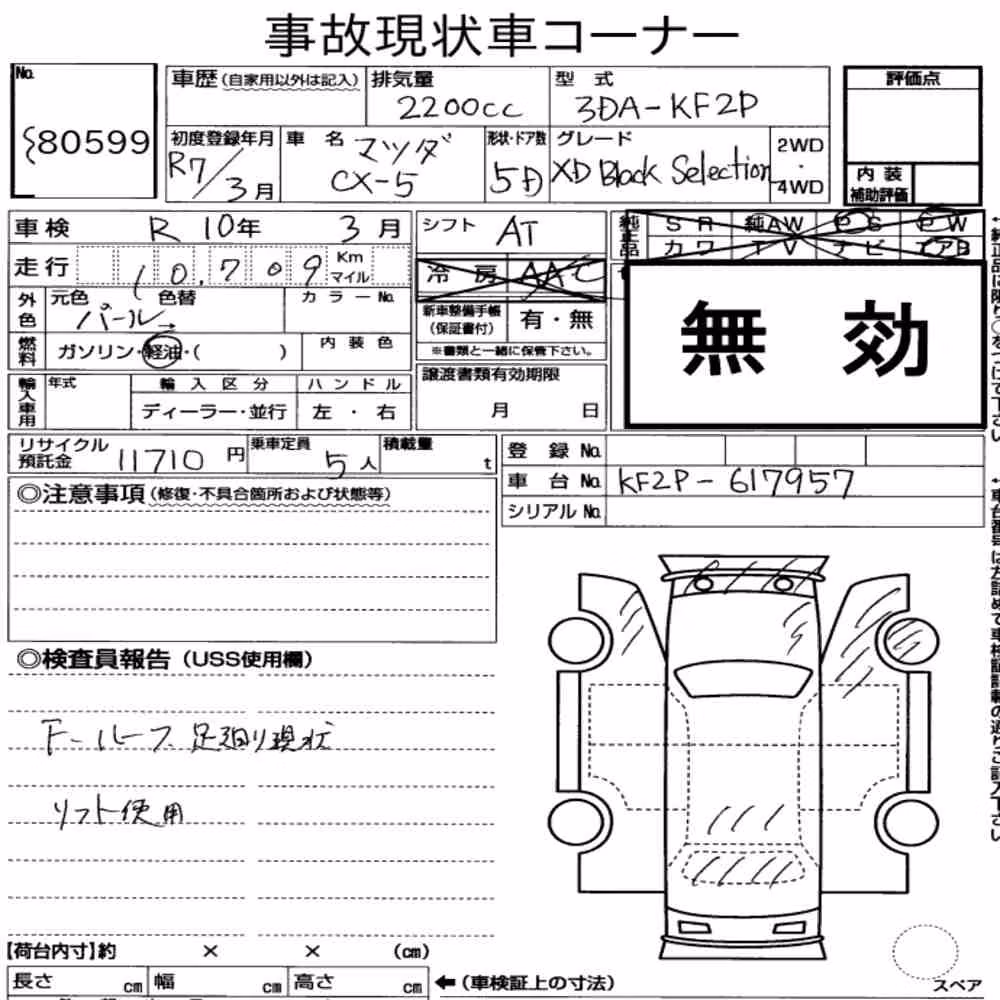 事故現状車コーナー
No. 80599
車歴(自家用以外は記入) 排気量 2200cc 型式 3DA-KF2P
初度登録年月 R7/3月 車名 マツダ CX-5 形状・ドア数 5D グレード XD Black Selection 2WD・4WD
評価点
内装補助評価
車検 R10年 3月 シフト AT
純正品 SR 純AW PS PW
カワ TV ナビ エアB
走行 10.709 Km マイル
冷房 AAC
外色 元色 パール 色替 カラーNo.
新車整備手帳(保証書付) 有・無
※書類と一緒に保管下さい。
無効
燃料 ガソリン・軽油・( ) 内装色
譲渡書類有効期限 月 日
輸入車用 年式 輸入区分 ディーラー・並行 ハンドル 左・右
リサイクル預託金 11710円 乗車定員 5人 積載量 t
登録No.
車台No. KF2P-617957
シリアルNo.
◎注意事項(修復・不具合箇所および状態等)
◎検査員報告(USS使用欄)
F-ルーフ 足廻り現状
リフト使用
【荷台内寸】約 × × (cm)
長さ cm 幅 cm 高さ cm ←(車検証上の寸法)
スペア